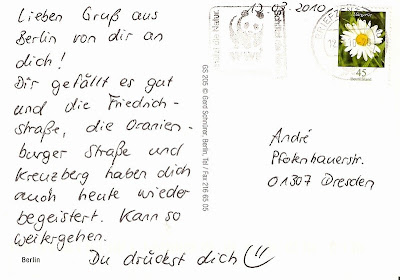 Lieben Gruß aus
Berlin von dir an
dich!
Dir gefällt es gut
und die Friedrich-
straße, die Oranien-
burger Straße und
Kreuzberg haben dich
auch heute wieder
begeistert. Kann so
weitergehen.
Du drückst dich
Berlin
GS 205 © Gerd Schnürer, Berlin, Tel / Fax 216 65 05
12.03.2010
BRIEFZEN
45
Deutschland
André
Pfotenhauerstr.
01307 Dresden